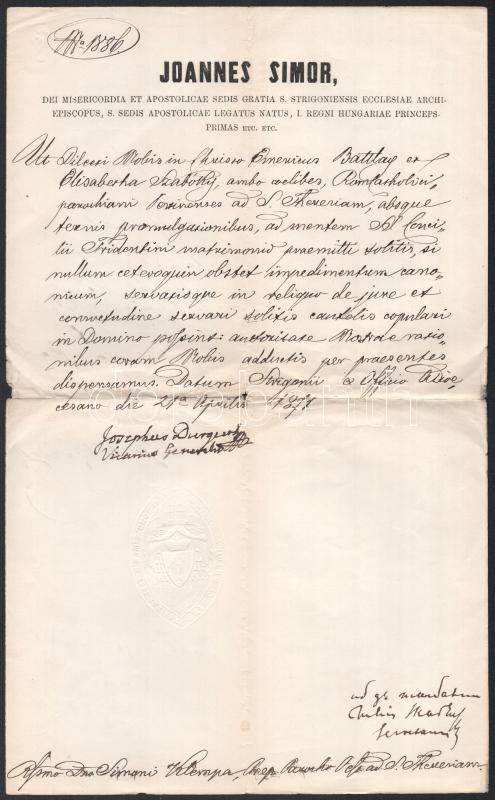 1886.
JOANNES SIMOR,
DEI MISERICORDIA ET APOSTOLICAE SEDIS GRATIA S. STRIGONIENSIS ECCLESIAE ARCHI-
EPISCOPUS, S. SEDIS APOSTOLICAE LEGATUS NATUS, I. REGNI HUNGARIAE PRINCEPS-
PRIMAS ETC. ETC.
Ut Dilecti Nobis in Christo Emericus Battlay et
Elisabetha Szabothy, ambo coelibes, Romcatholici,
parochiani Pestinenses ad S. Theresiam, absque
ternis promulgationibus, ad mentem SS. Conci-
lii Tridentini matrimonio praemitti solitis, si
nullum ceteroquin obstet impedimentum cano-
nicum, servatisque in reliquo de jure et
consvetudine servari solitis cautelis copulari
in Domino possint: auctoritate Nostra ratio-
nibus coram Nobis adductis per praesentes
dispensamus. Datum Strigonii e Officio Dioe-
cesano die 21a Aprilis 1871
Josephus
Vicarius Generalis
ad gr mandatum
Julius
Secretarius
Rssmo Dno Simoni Parocho Pest ad S. Theresiam.